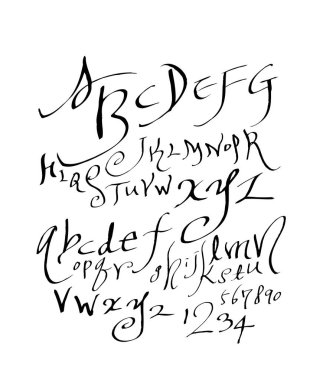 ABCDEFG
HIJKLMNOPR
QSTUVWXYZ
abcdef ghijlmn
opqr kstu
vwxyz 1234
567890